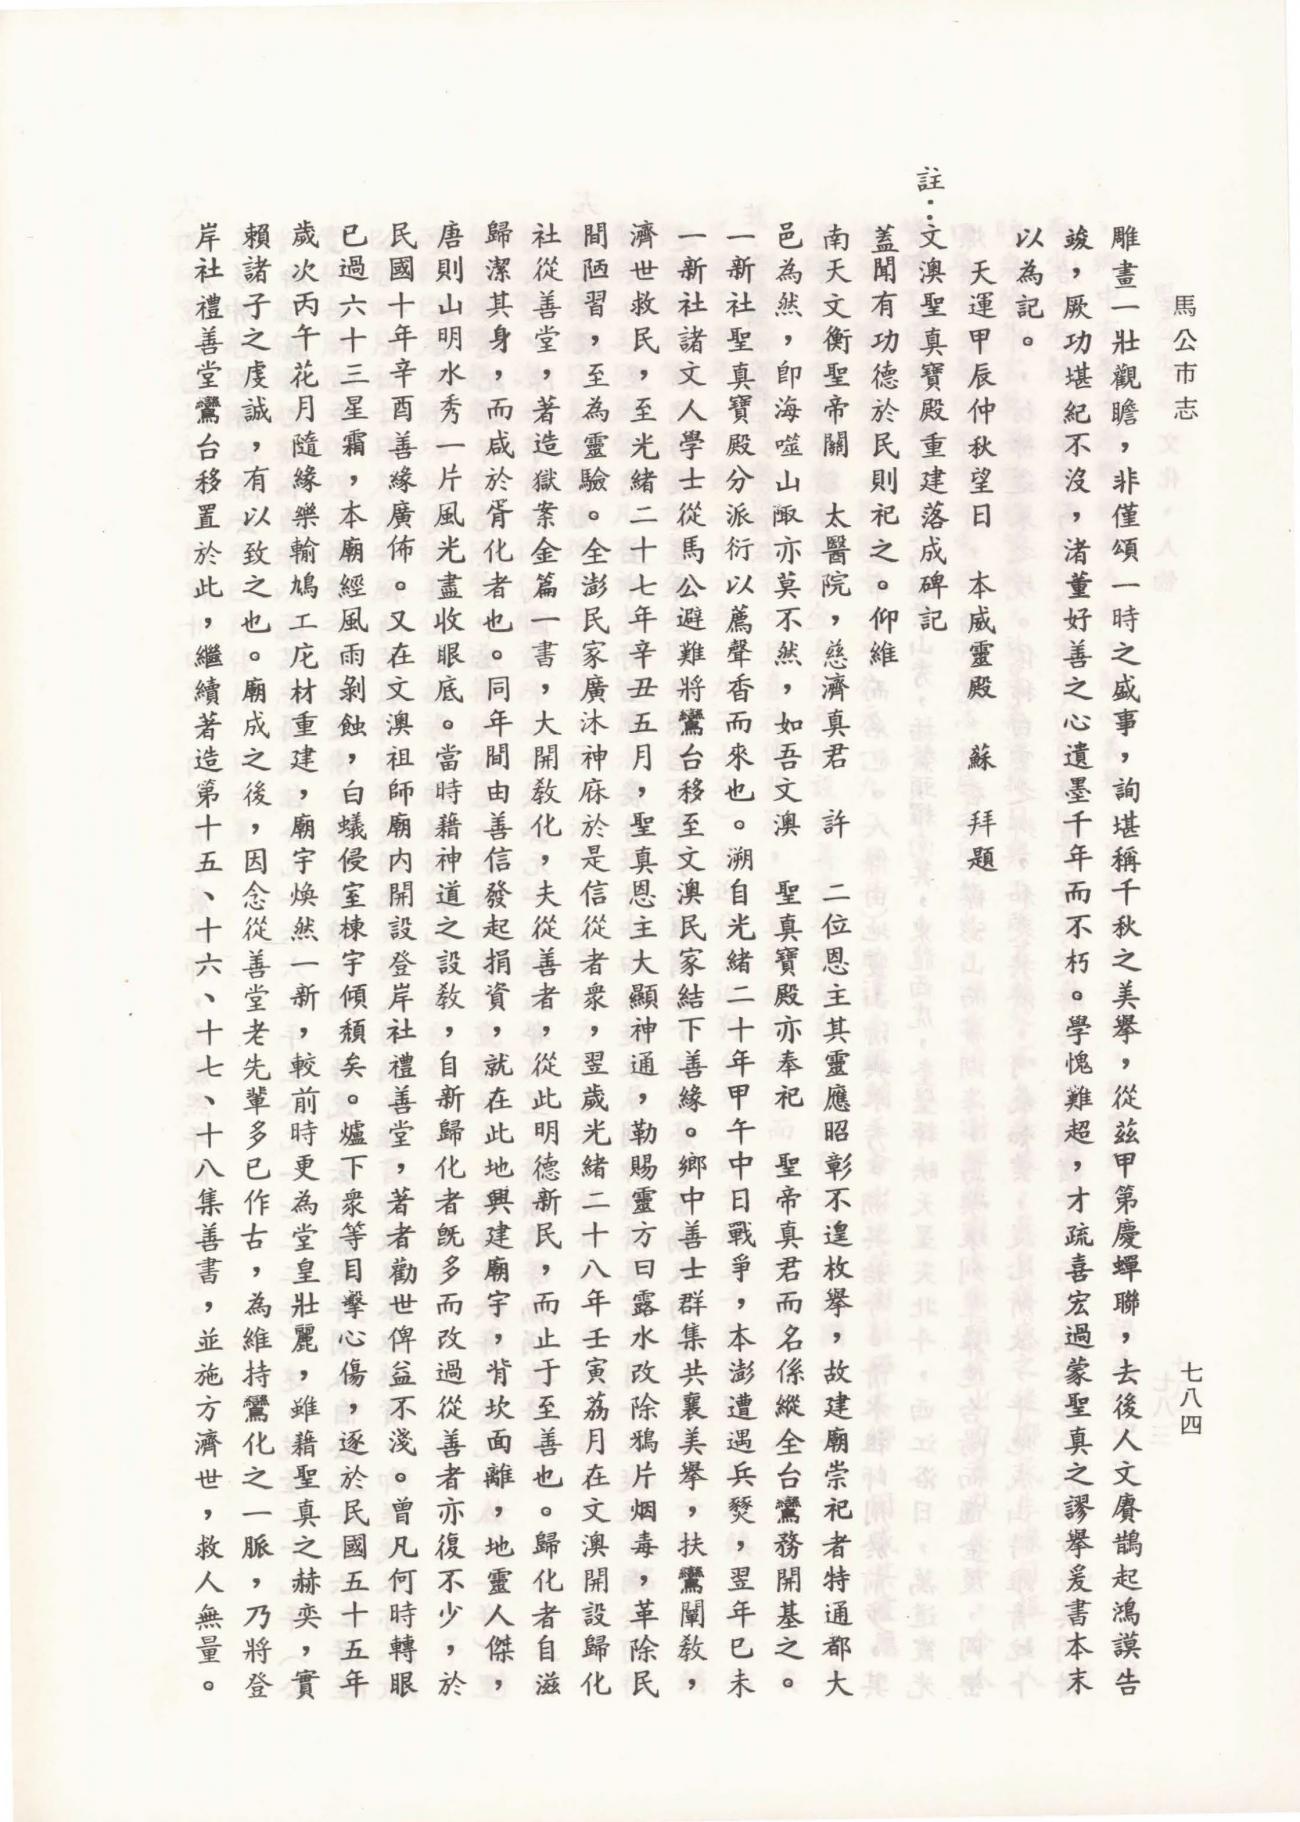 馬公市志
七八四
雕畫一壯觀瞻，非僅頌一時之盛事，詢堪稱千秋之美舉，從茲甲第慶蟬聯，去後人文賡鵲起鴻謨告
竣，厥功堪紀不沒，渚董好善之心遺墨千年而不朽。學愧難超，才疏喜宏過蒙聖真之謬舉爰書本末
以為記。
天運甲辰仲秋望日　本威靈殿　蘇　拜題
註：文澳聖真寶殿重建落成碑記
蓋聞有功德於民則祀之。仰維
南天文衡聖帝關　太醫院，慈濟真君　許　二位恩主其靈應昭彰不遑枚舉，故建廟崇祀者特通都大
邑為然，卽海噬山陬亦莫不然，如吾文澳　聖真寶殿亦奉祀　聖帝真君而名係縱全台鸞務開基之。
一新社聖真寶殿分派衍以薦聲香而來也。溯自光緒二十年甲午中日戰爭，本澎遭遇兵燹，翌年已未
一新社諸文人學士從馬公避難將鸞台移至文澳民家結下善緣。鄉中善士群集共襄美舉，扶鸞闡教，
濟世救民，至光緒二十七年辛丑五月，聖真恩主大顯神通，勒賜靈方曰露水改除鴉片烟毒，革除民
間陋習，至為靈驗。全澎民家廣沐神庥於是信從者衆，翌歲光緒二十八年壬寅荔月在文澳開設歸化
社從善堂，著造獄案金篇一書，大開教化，夫從善者，從此明德新民，而止于至善也。歸化者自滋
歸潔其身，而咸於胥化者也。同年間由善信發起捐資，就在此地興建廟宇，背坎面離，地靈人傑，
唐則山明水秀一片風光盡收眼底。當時藉神道之設教，自新歸化者旣多而改過從善者亦復不少，於
民國十年辛酉善緣廣佈。又在文澳祖師廟內開設登岸社禮善堂，著者勸世俾益不淺。曾凡何時轉眼
已過六十三星霜，本廟經風雨剝蝕，白蟻侵室棟宇傾頹矣。爐下衆等目擊心傷，逐於民國五十五年
歲次丙午花月隨緣樂輸鳩工庀材重建，廟宇煥然一新，較前時更為堂皇壯麗，雖藉聖真之赫奕，實
賴諸子之虔誠，有以致之也。廟成之後，因念從善堂老先輩多已作古，為維持鸞化之一脈，乃將登
岸社禮善堂鸞台移置於此，繼續著造第十五、十六、十七、十八集善書，並施方濟世，救人無量。